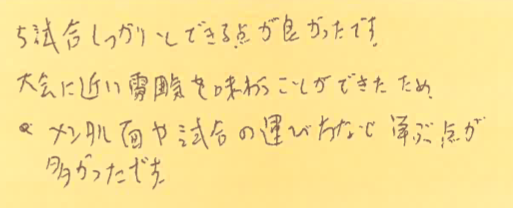 5試合しっかりとできる点が良かったです。
大会に近い雰囲気を味わうことができたため、
メンタル面や試合の運び方など学ぶ点が
多かったです。